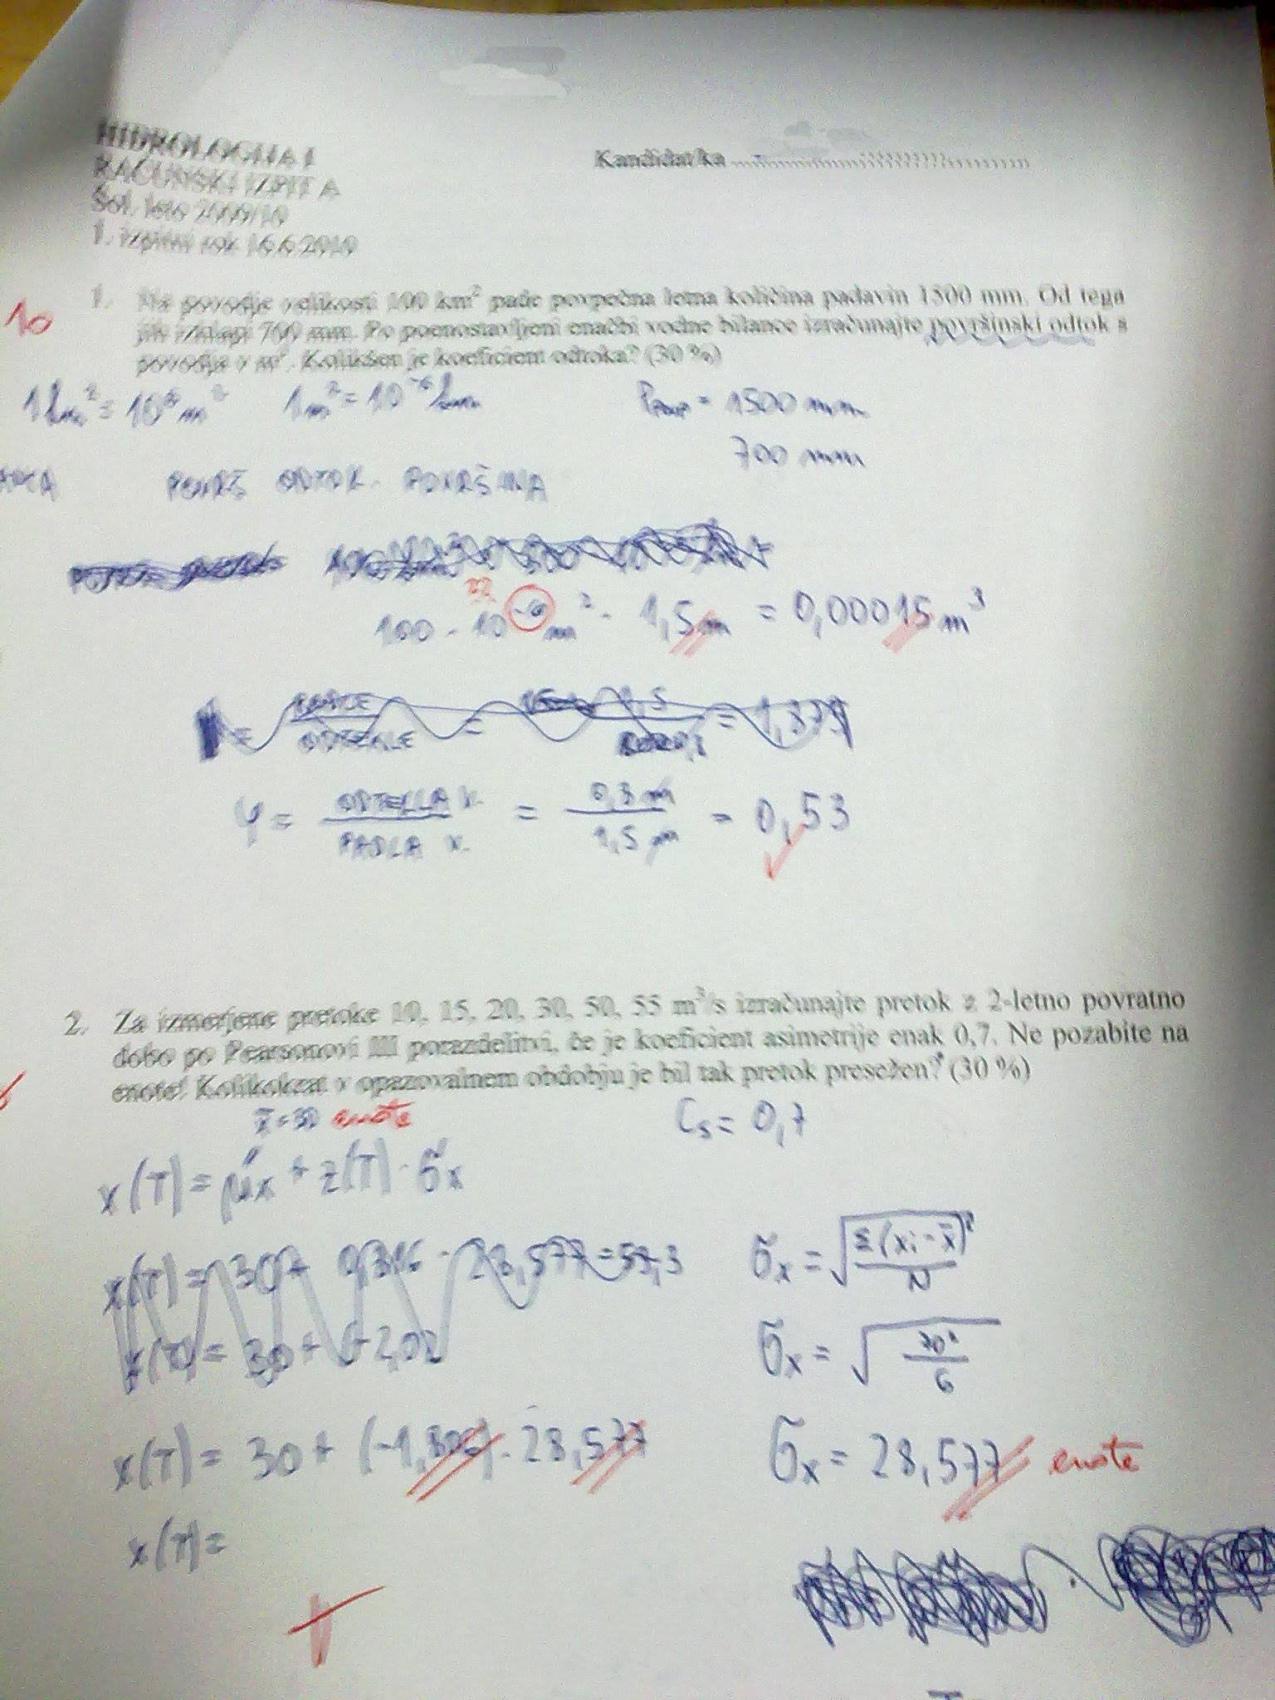 HIDROLOGIJA I
Kandidat/ka
RAČUNSKI IZPIT A
Šol. leto 2009/10
1. izpitni rok 16.6.2010
10
1. Na povodje velikosti 100 km² pade povpečna letna količina padavin 1500 mm. Od tega
jih izhlapi 700 mm. Po poenostavljeni enačbi vodne bilance izračunajte površinski odtok s
povodja v m³. Kolikšen je koeficient odtoka? (30 %)
1km² = 10⁶m² 1m² = 10⁻⁶km = 1500 mm
700 mm
POVRŠ ODTOK - POVRŠINA
100 · 10⁻⁶m² · 1,5m = 0,00015m³
= ODTEKLE = = 1,875
φ = ODTEKLA V. / PADLA V. = 0,8 m / 1,5 m = 0,53
2. Za izmerjene pretoke 10, 15, 20, 30, 50, 55 m³/s izračunajte pretok z 2-letno povratno
dobo po Pearsonovi III porazdelitvi, če je koeficient asimetrije enak 0,7. Ne pozabite na
enote! Kolikokrat v opazovalnem obdobju je bil tak pretok presežen? (30 %)
x̄ = 30 enote Cs = 0,7
x(T) = μx + z(T) · σx
x(T) = 30 + · 28,577 =
σx = √(Σ(xi - x̄)² / N)
σx = √( / 6)
x(T) = 30 + · 28,577
σx = 28,577 enote
x(T) =